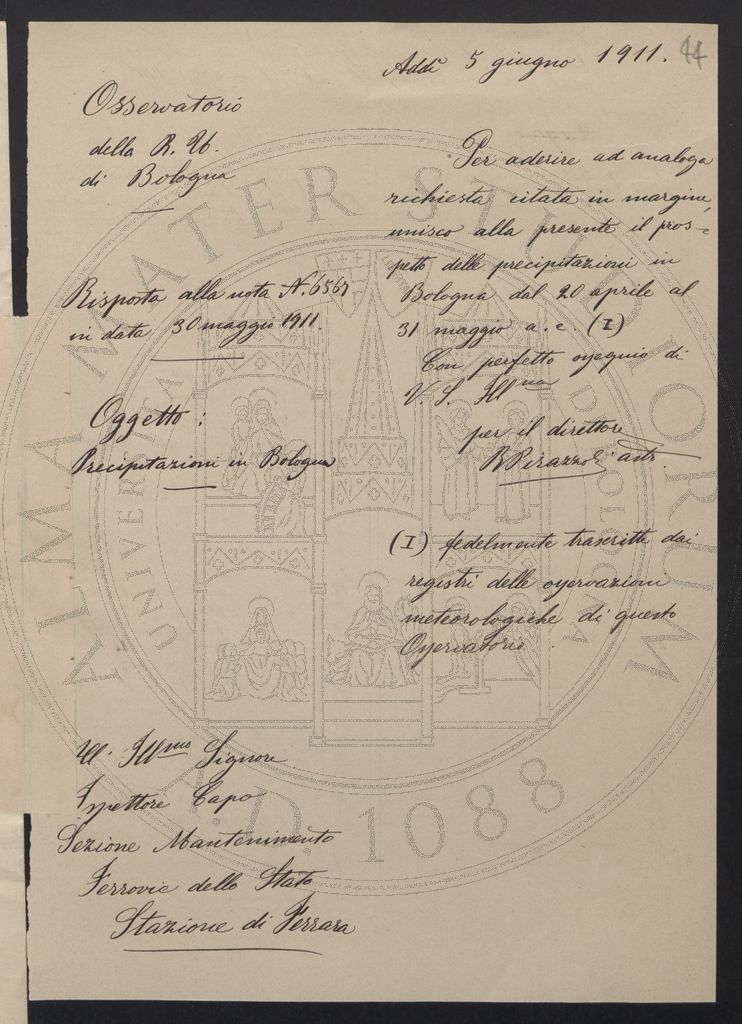 Addì 5 giugno 1911.
44
Osservatorio
della R. U.
di Bologna
Risposta alla nota N. 6567
in data 30 maggio 1911.
Oggetto:
Precipitazioni in Bologna
Per aderire ad analoga
richiesta citata in margine,
unisco alla presente il pros=
petto delle precipitazioni in
Bologna dal 20 aprile al
31 maggio a. c. (I)
Con perfetto ossequio di
V. S. Illma
per il direttore
R Pirazzoli astr.
(I) fedelmente trascritte dai
registri delle osservazioni
meteorologiche di questo
Osservatorio.
All' Illmo Signore
Ispettore Capo
Sezione Mantenimento
Ferrovie dello Stato
Stazione di Ferrara
ALMA MATER STUDIORUM
UNIVERSITÀ DI BOLOGNA
A.D. 1088